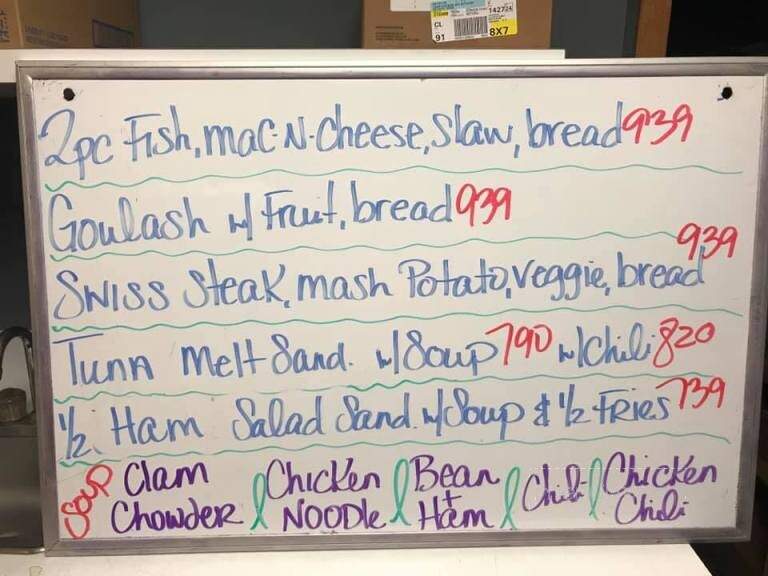 142724
CL
91
8X7
2pc Fish, mac-N-Cheese, Slaw, bread 939
Goulash w/ Fruit, bread 939
Swiss Steak, mash Potato, veggie, bread 939
Tuna melt Sand. w/Soup 790 w/Chili 820
1/2 Ham Salad Sand. w/Soup & 1/2 FRIES 739
Soup
Clam Chowder
Chicken NOODle
Bean + Ham
Chili
Chicken Chili